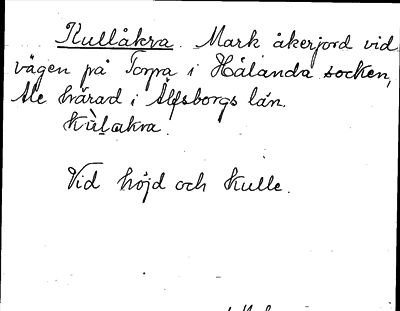 Kullåkra. Mark åkerjord vid
vägen på Torpa i Hålanda socken,
Ale härad i Älfsborgs län.
Kùlakra.
Vid höjd och Kulle.